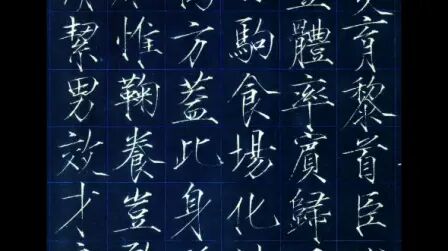 育黎首臣
體率賓歸
駒食場化
方蓋此身
惟鞠養豈
絜男效才